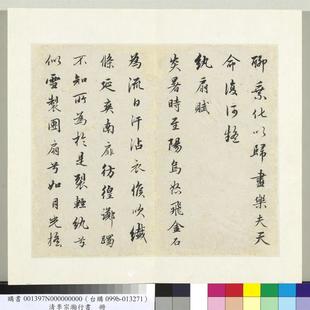 聊乘化以歸盡樂夫天
命復何疑
紈扇賦
炎暑時至陽烏怒飛金石
為流汗沾衣候吹纖
條延爽南扉彷徨躑躅
不知所為於是裂輕紈兮
似雪製團扇兮如月光搖
購書 001397N000000000 (台購 099b-013271)
清李宗瀚行書 冊